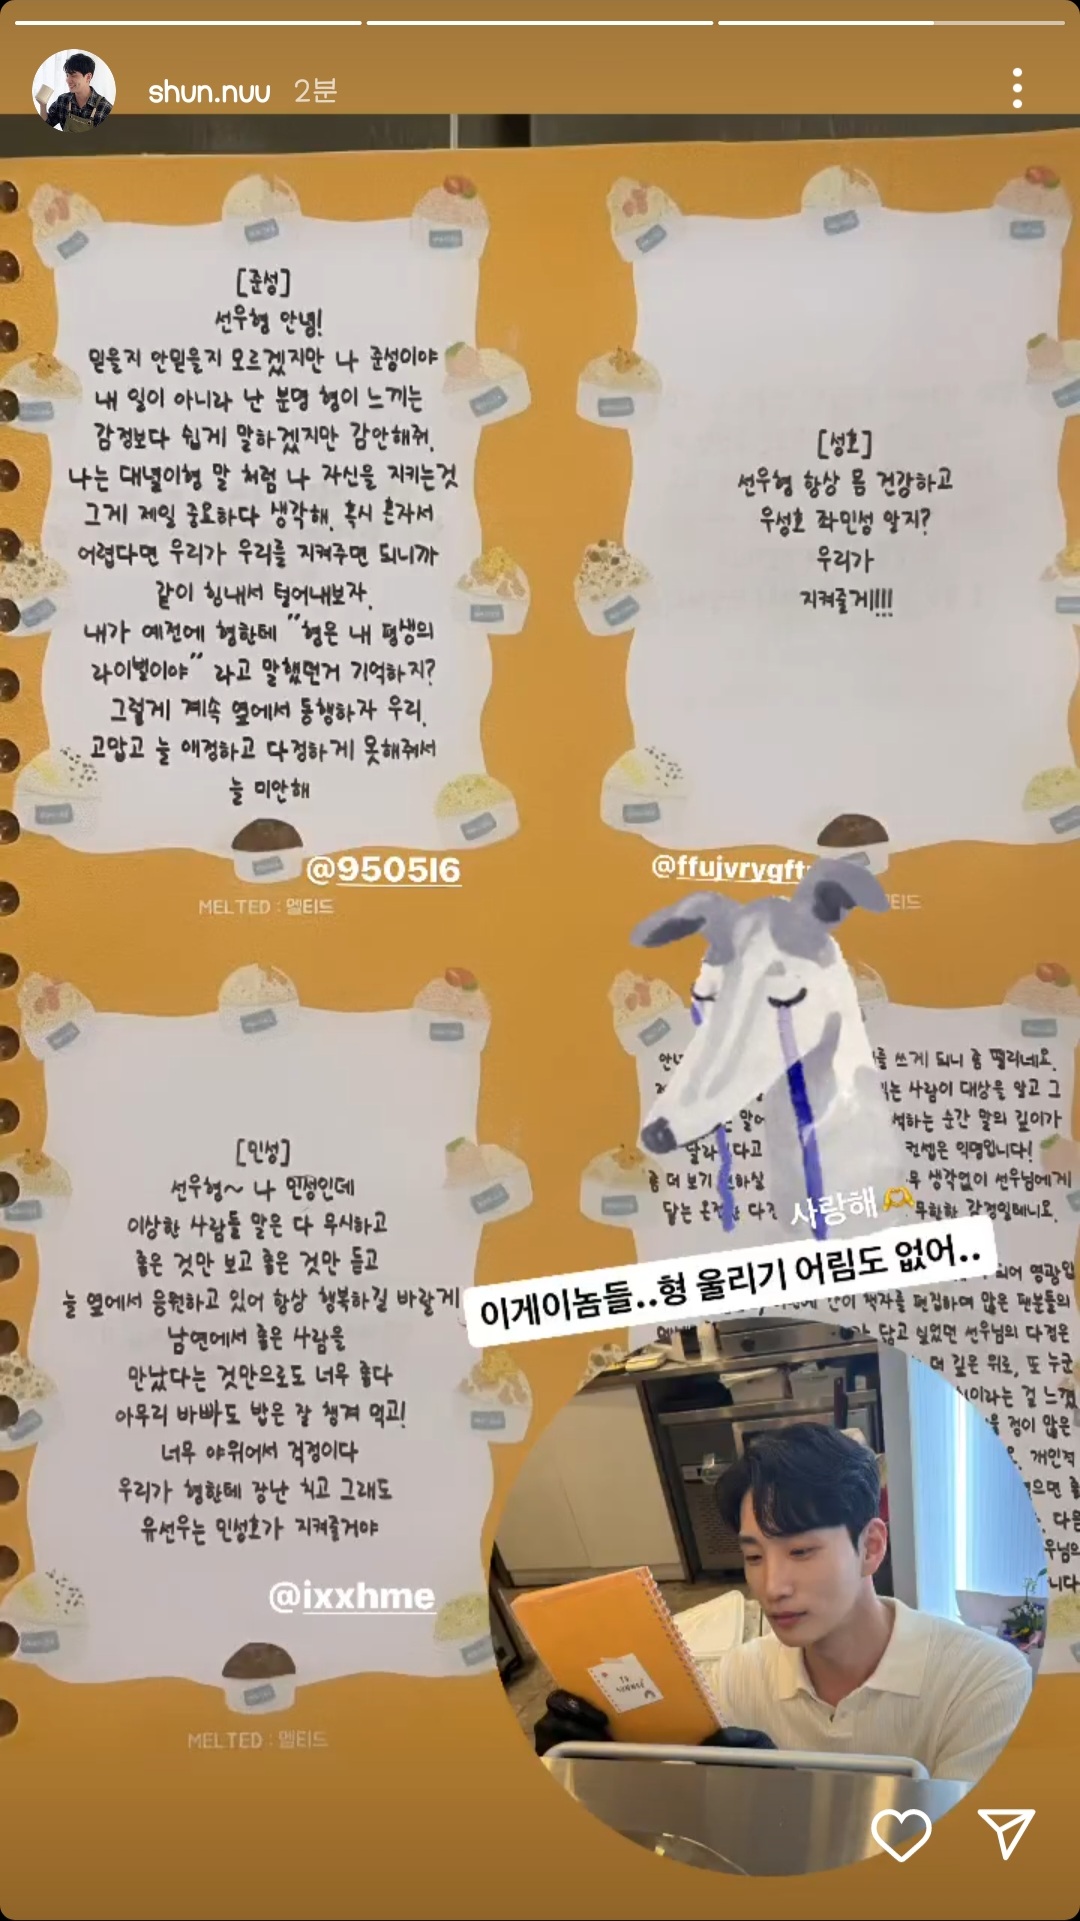 shun.nuu 2분
[준성]
선우형 안녕!
믿을지 안믿을지 모르겠지만 나 준성이야
내 일이 아니라 난 분명 형이 느끼는
감정보다 쉽게 말하겠지만 감안해줘.
나는 대널이형 말 처럼 나 자신을 지키는것
그게 제일 중요하다 생각해. 혹시 혼자서
어렵다면 우리가 우리를 지켜주면 되니까
같이 힘내서 털어내보자.
내가 예전에 형한테 "형은 내 평생의
라이벌이야" 라고 말했던거 기억하지?
그렇게 계속 옆에서 동행하자 우리.
고맙고 늘 애정하고 다정하게 못해줘서
늘 미안해
@950516
MELTED : 멜티드
[성호]
선우형 항상 몸 건강하고
우성호 좌민성 알지?
우리가
지켜줄게!!!!
@ffujvrygft
멜티드
[민성]
선우형~ 나 민성인데
이상한 사람들 말은 다 무시하고
좋은 것만 보고 좋은 것만 듣고
늘 옆에서 응원하고 있어 항상 행복하길 바랄게
남연에서 좋은 사람을
만났다는 것만으로도 너무 좋다
아무리 바빠도 밥은 잘 챙겨 먹고!
너무 야위어서 걱정이다
우리가 형한테 장난 치고 그래도
유선우는 민성호가 지켜줄거야
@ixxhme
MELTED : 멜티드
쓰게 되니 좀 떨리네요.
사람이 대상을 알고 그
하는 순간 말의 깊이가
컨셉은 익명입니다!
좀 더 보기
생각없이 선우님에게
닿는 온전한
무한한 감정일테니요.
사랑해
이게이놈들..형 울리기 어림도 없어..
되어 영광입
책자를 편집하며 많은 팬분들의
담고 싶었던 선우님의 다정은
더 깊은 위로, 또 누군
이라는 걸 느꼈
정이 많은
개인적
으면 좋
다음
우님의
니다
TO